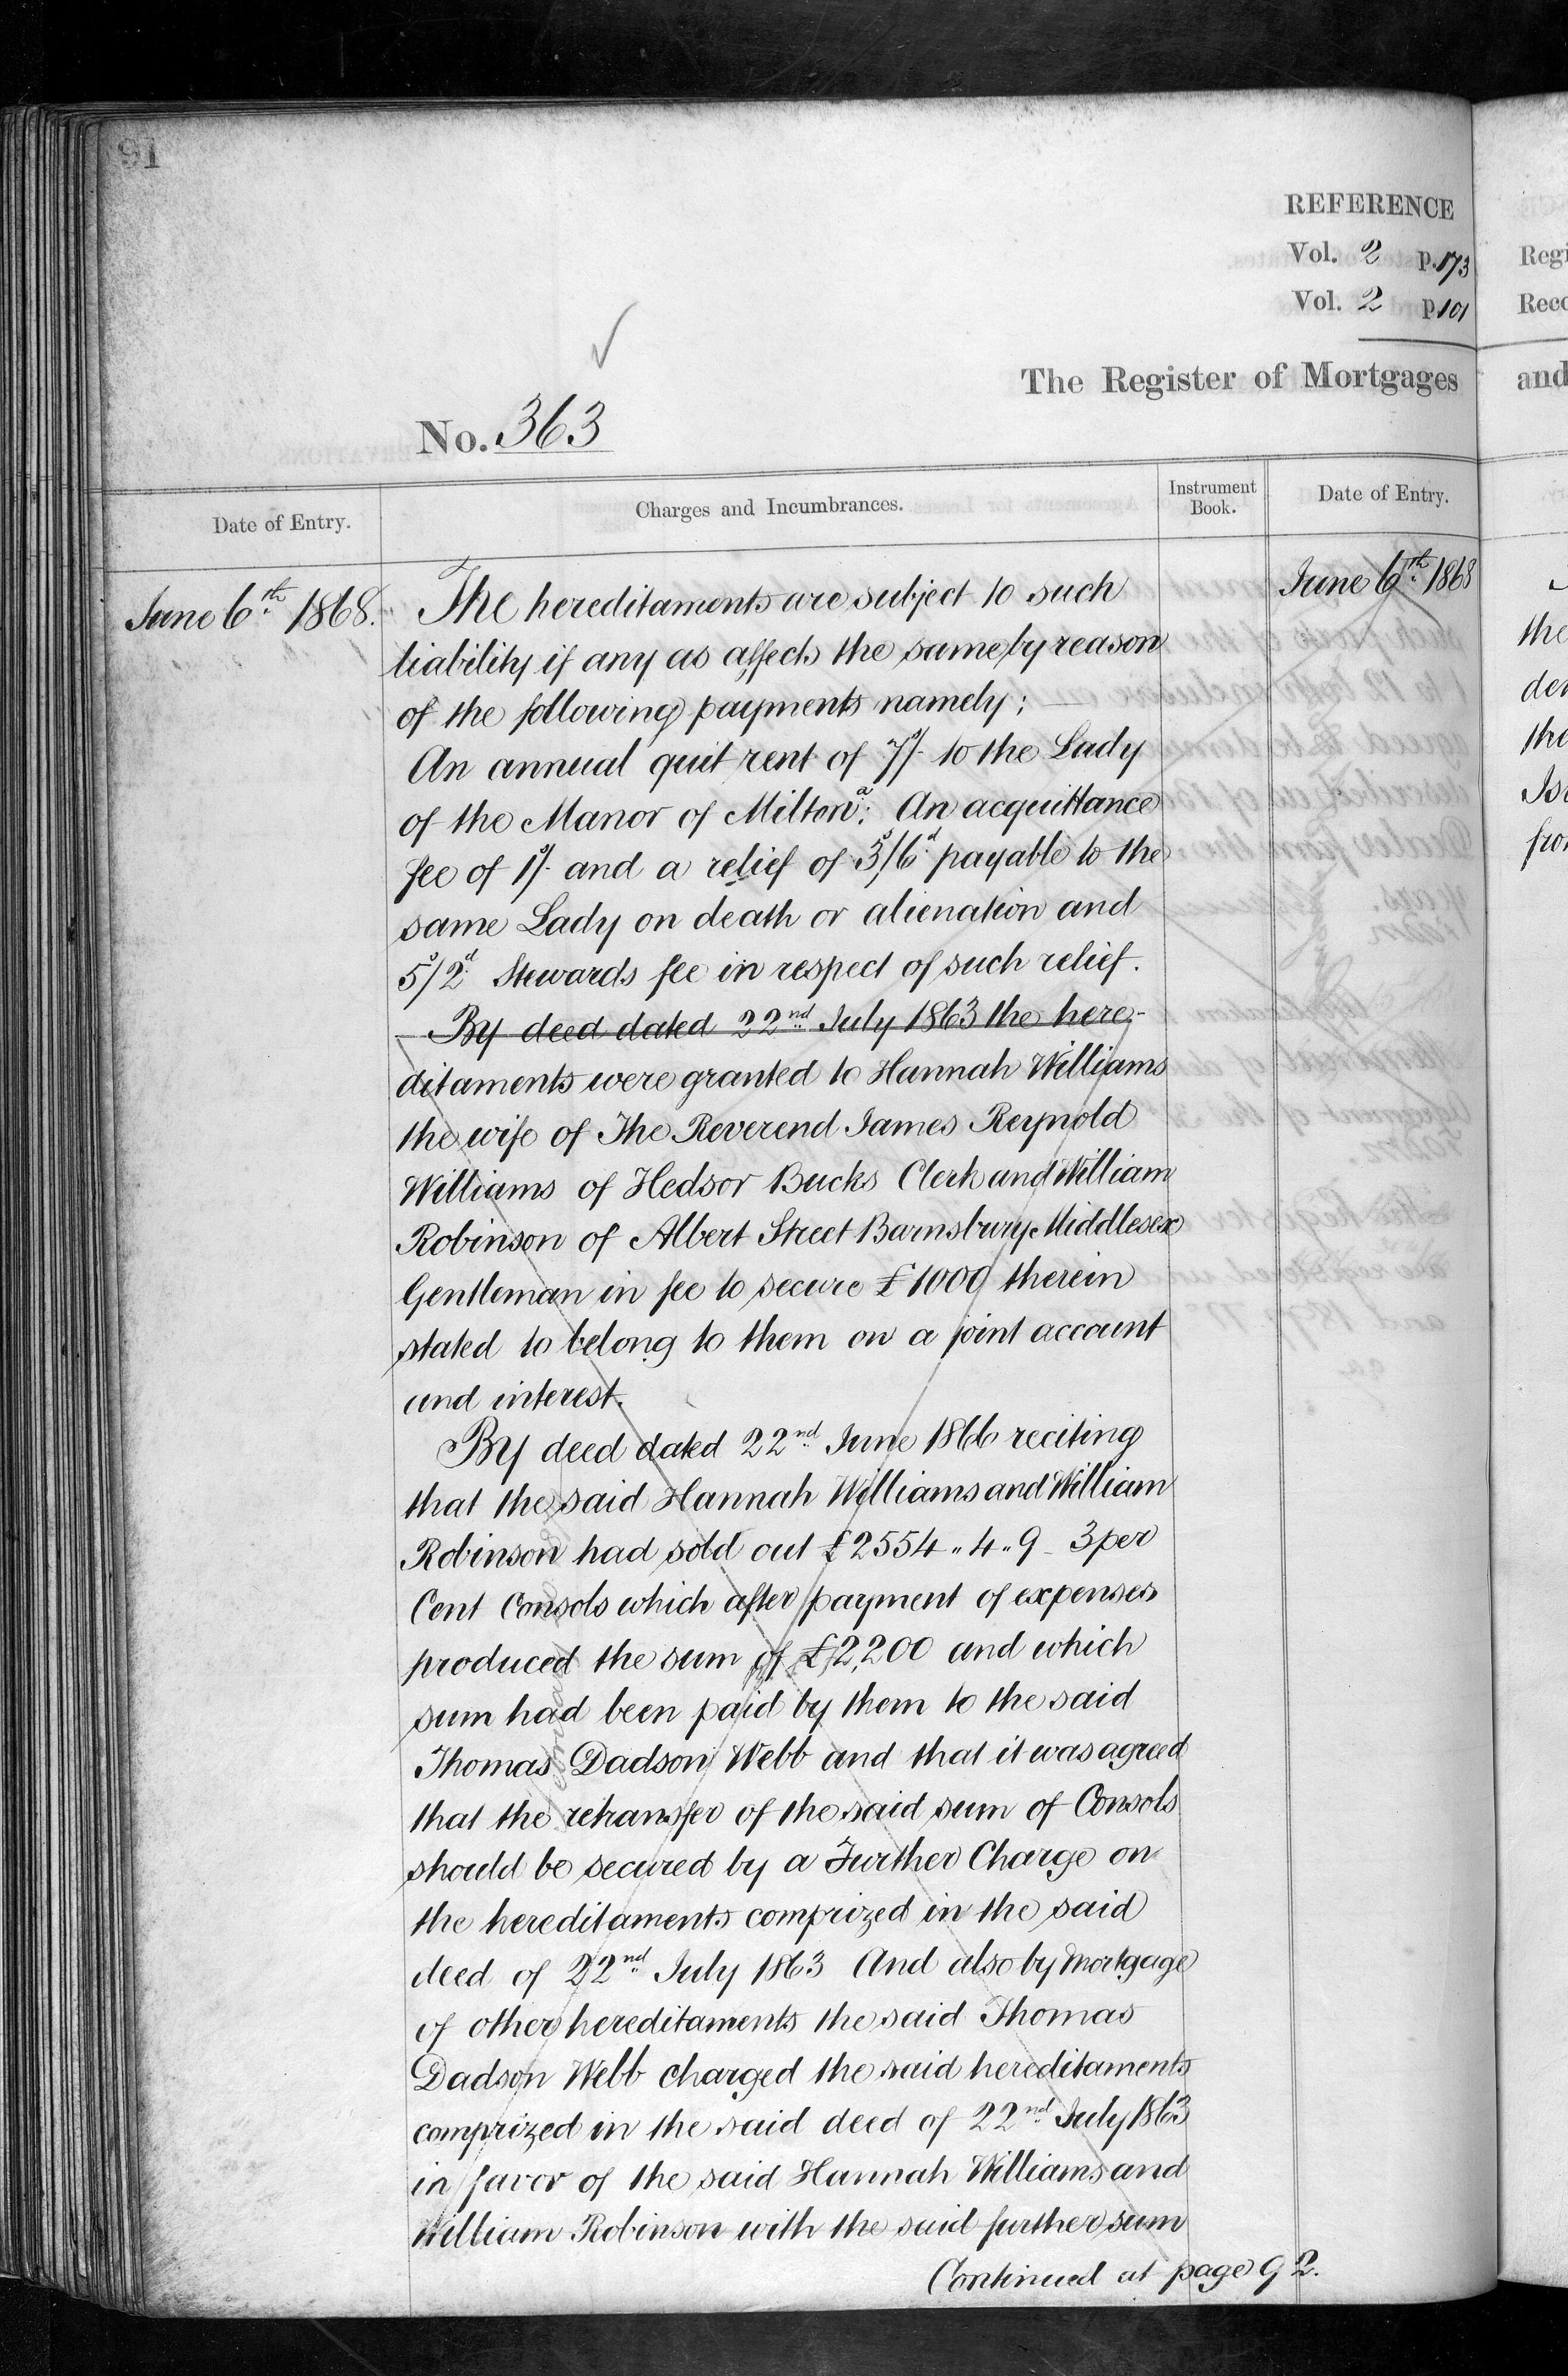 91
REFERENCE
Vol. 2 p. 173
Vol. 2 p 101
The Register of Mortgages
No. 363
Date of Entry.
Charges and Incumbrances.
Instrument Book.
Date of Entry.
June 6th 1868.
June 6th 1868
The hereditaments are subject to such
liability if any as affects the same by reason
of the following payments namely;
An annual quit rent of 7s/- to the Lady
of the Manor of Milton: An acquittance
fee of 1s/- and a relief of 3s/6d payable to the
same Lady on death or alienation and
5s/2d Stewards fee in respect of such relief.
By deed dated 22nd July 1863 the here-
ditaments were granted to Hannah Williams
the wife of The Reverend James Reynold
Williams of Hedsor Bucks Clerk and William
Robinson of Albert Street Barnsbury Middlesex
Gentleman in fee to secure £1000 therein
stated to belong to them on a joint account
and interest.
By deed dated 22nd June 1866 reciting
that the said Hannah Williams and William
Robinson had sold out £2554 " 4 " 9 - 3 per
Cent Consols which after payment of expenses
produced the sum of £2,200 and which
sum had been paid by them to the said
Thomas Dadson Webb and that it was agreed
that the retransfer of the said sum of Consols
should be secured by a Further Charge on
the hereditaments comprized in the said
deed of 22nd July 1863 And also by Mortgage
of other hereditaments the said Thomas
Dadson Webb charged the said hereditaments
comprized in the said deed of 22nd July 1863
in favor of the said Hannah Williams and
William Robinson with the said further sum
Continued at page 92.
Regi
Reco
and
the
den
the
Is
fro